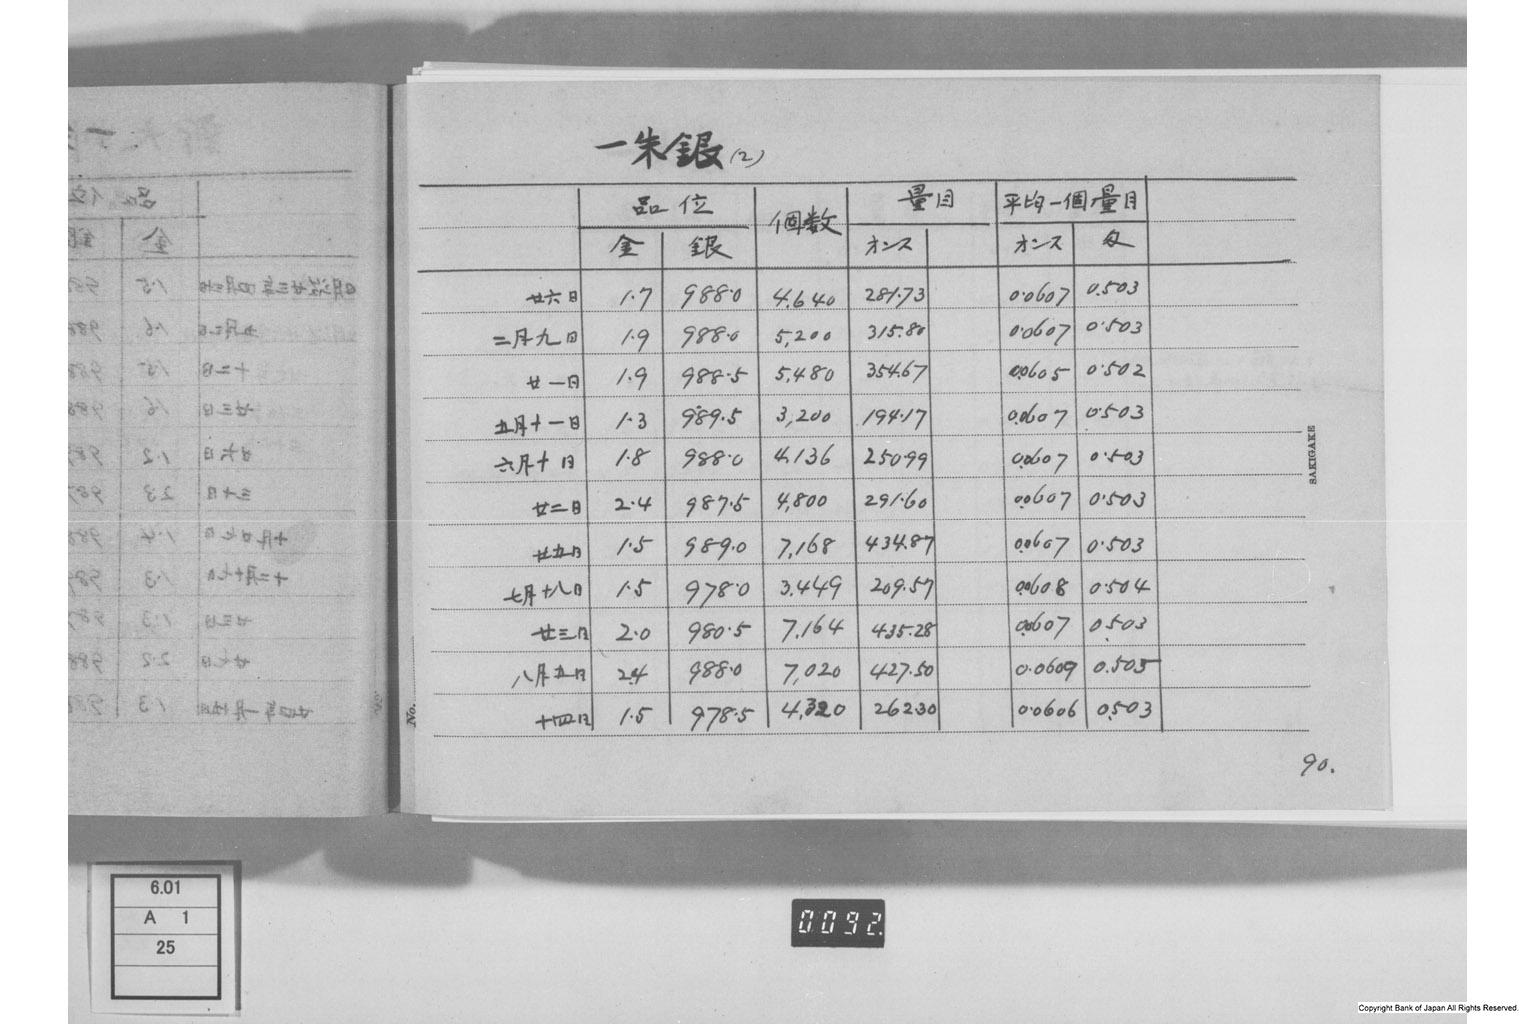 一朱銀(2)
品位 個数 量目 平均一個量目
金 銀 オンス オンス 匁
廿六日 1.7 988.0 4,640 281.73 0.0607 0.503
二月九日 1.9 988.0 5,200 315.80 0.0607 0.503
廿一日 1.9 988.5 5,480 354.67 0.0605 0.502
五月十一日 1.3 989.5 3,200 194.17 0.0607 0.503
六月十日 1.8 988.0 4,136 250.99 0.0607 0.503
廿二日 2.4 987.5 4,800 291.60 0.0607 0.503
廿五日 1.5 989.0 7,168 434.87 0.0607 0.503
七月十八日 1.5 978.0 3,449 209.57 0.0608 0.504
廿三日 2.0 980.5 7,164 435.28 0.0607 0.503
八月五日 2.4 988.0 7,020 427.50 0.0609 0.505
十四日 1.5 978.5 4,320 262.30 0.0606 0.503
No.
SAKIGAKE
90.
6.01
A 1
25
0092
Copyright Bank of Japan All Rights Reserved.